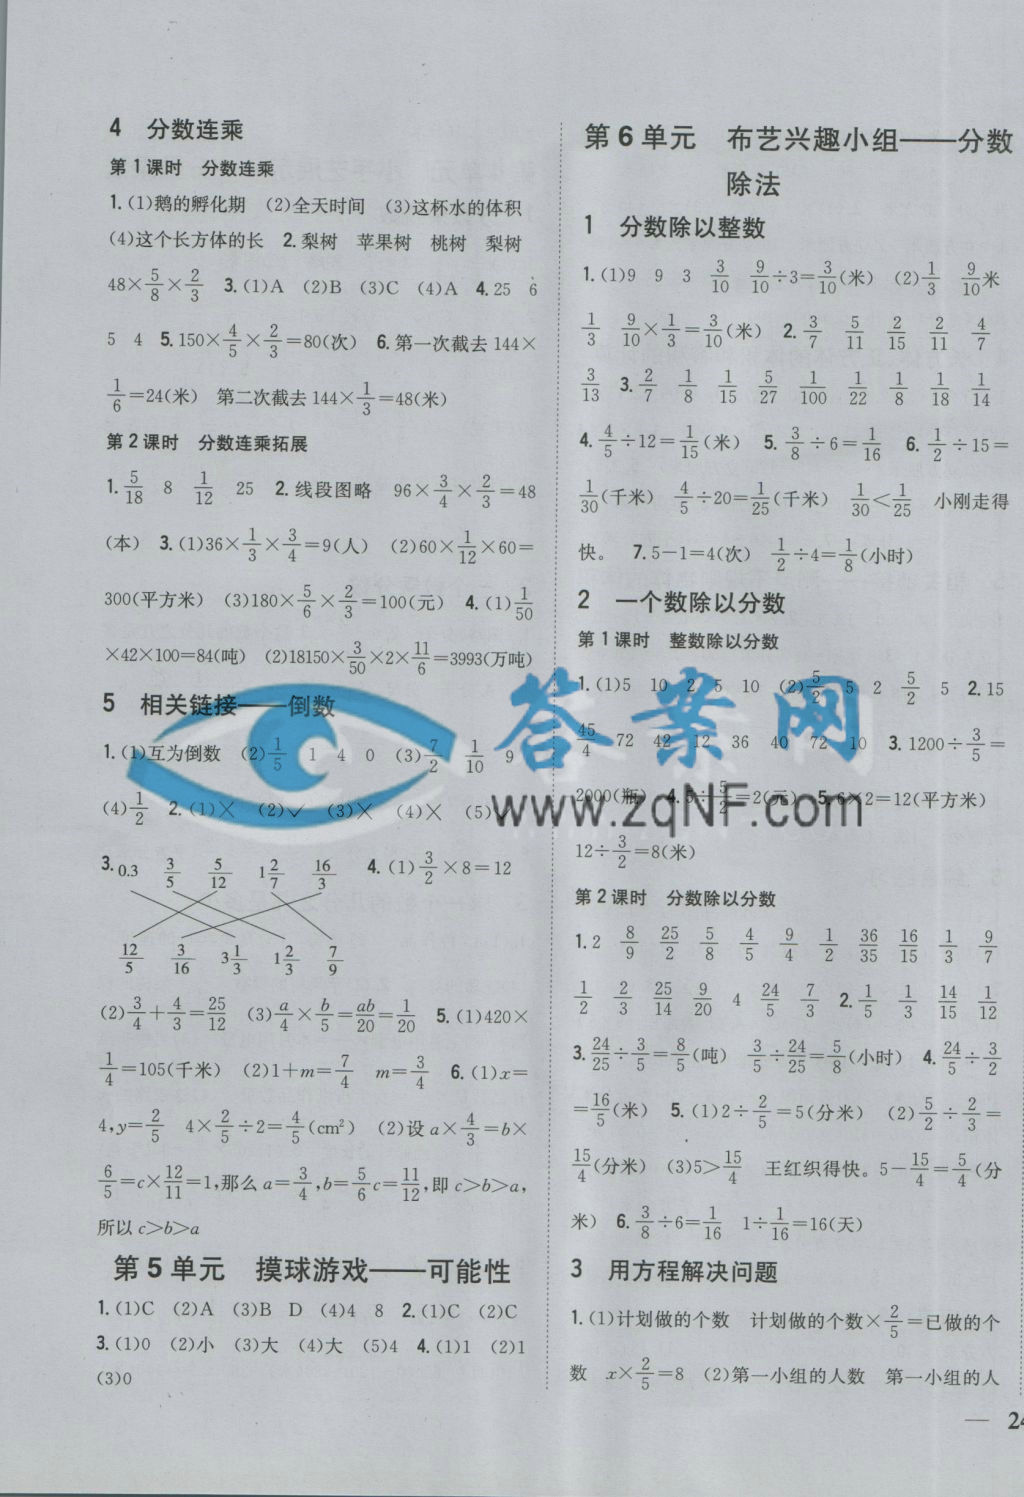 4 分数连乘
第1课时 分数连乘
1.(1)鹅的孵化期 (2)全天时间 (3)这杯水的体积
(4)这个长方体的长 2.梨树 苹果树 桃树 梨树
48×5/8×2/3 3.(1)A (2)B (3)C (4)A 4.25 6
5 4 5.150×4/5×2/3=80(次) 6.第一次截去144×
1/6=24(米) 第二次截去144×1/3=48(米)
第2课时 分数连乘拓展
1.5/18 8 1/12 25 2.线段图略 96×3/4×2/3=48
(本) 3.(1)36×1/3×3/4=9(人) (2)60×1/12×60=
300(平方米) (3)180×5/6×2/3=100(元) 4.(1)1/50
×42×100=84(吨) (2)18150×3/50×2×11/6=3993(万吨)
5 相关链接——倒数
1.(1)互为倒数 (2)1/5 1 4 0 (3)7/2 1/10 9
(4)1/2 2.(1)× (2)✓ (3)× (4)× (5)
3. 0.3 3/5 5/12 1 2/7 16/3 4.(1)3/2×8=12
12/5 3/16 3 1/3 1 2/3 7/9
(2)3/4+4/3=25/12 (3)a/4×b/5=ab/20=1/20 5.(1)420×
1/4=105(千米) (2)1+m=7/4 m=3/4 6.(1)x=
4,y=2/5 4×2/5÷2=4/5(cm²) (2)设a×4/3=b×
6/5=c×12/11=1,那么a=3/4,b=5/6c=11/12,即c>b>a,
所以c>b>a
第5单元 摸球游戏——可能性
1.(1)C (2)A (3)B D (4)4 8 2.(1)C (2)C
3.(1)0 (2)小 (3)大 (4)大 (5)4 4.(1)1 (2)1
(3)0
第6单元 布艺兴趣小组——分数
除法
1 分数除以整数
1.(1)9 9 3 3/10 9/10÷3=3/10(米) (2)1/3 9/10米
1/3 9/10×1/3=3/10(米) 2.3/7 5/11 2/15 2/11 4/7
3/13 3.2/7 1/8 1/15 5/27 1/100 1/22 1/8 1/18 1/14
4.4/5÷12=1/15(米) 5.3/8÷6=1/16 6.1/2÷15=
1/30(千米) 4/5÷20=1/25(千米) 1/30<1/25 小刚走得
快。 7.5-1=4(次) 1/2÷4=1/8(小时)
2 一个数除以分数
第1课时 整数除以分数
1.(1)5 10 2 5 10 (2)5/2 5 2 5/2 5 2.15
45/4 72 42 12 36 40 72 10 3.1200÷3/5=
2000(瓶) 4.5÷5/2=2(元) 5.6×2=12(平方米)
12÷3/2=8(米)
第2课时 分数除以分数
1.2 8/9 25/2 5/8 4/5 9/4 1/2 36/35 16/15 1/3 9/7
1/2 2/3 25/14 9/20 4 24/5 7/3 2.1/5 1/3 14/15 1/12
3.24/25÷3/5=8/5(吨) 3/5÷24/25=5/8(小时) 4.24/5÷3/2
=16/5(米) 5.(1)2÷2/5=5(分米) (2)5/2÷2/3=
15/4(分米) (3)5>15/4 王红织得快。5-15/4=5/4(分
米) 6.3/8÷6=1/16 1÷1/16=16(天)
3 用方程解决问题
1.(1)计划做的个数 计划做的个数×2/5=已做的个
数 x×2/5=8 (2)第一小组的人数 第一小组的人
— 24
答案网
www.zqNF.com